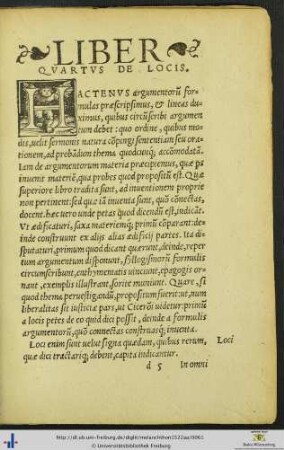 LIBER
QVARTVS DE LOCIS.
HACTENVS argumentorũ for-
mulas præscripsimus, & lineas du-
ximus, quibus circũscribi argumen
tum debet: quo ordine, quibus mo-
dis, uelit sermonis natura cõpingi sententiam seu ora-
tionem, ad probãdum thema quodcunq; accõmodatã.
Iam de argumentorum materia præcipiemus, quæ pa
inuenit materiẽ, qua probes quod propositũ est. Quæ
superiore libro tradita sunt, ad inuentionem proprie
non pertinent: sed quæ iã inuenta sunt, quo cõnectas,
docent. hæc uero unde petas quod dicendũ est, indicãt.
Vt ædificaturi, saxa materiemq; primũ cõparant: de-
inde construunt ex alijs alias ædificij partes. Ita di-
sputaturi, primum quod dicant quærunt, deinde, reper
tum argumentum disponunt, syllogismorũ formulis
circumscribunt, enthymematis uinciunt, epagogis or-
nant, exemplis illustrant, sorite muniunt. Quare, si
quod thema peruestigandũ, propositum fuerit: ut, num
liberalitas sit iustitiæ pars, ut Ciceroi uidetur: primũ
a locis petes de eo quid dici possit, deinde a formulis
argumentorũ, quo connectas construasq; inuenta.
Loci enim sunt uelut signa quædam, quibus rerum,
Loci
quæ dici tractariq; debent, capita indicantur.
d 5 In omni
http://dl.ub.uni-freiburg.de/diglit/melanchthon1522aa/0061
© Universitätsbibliothek Freiburg